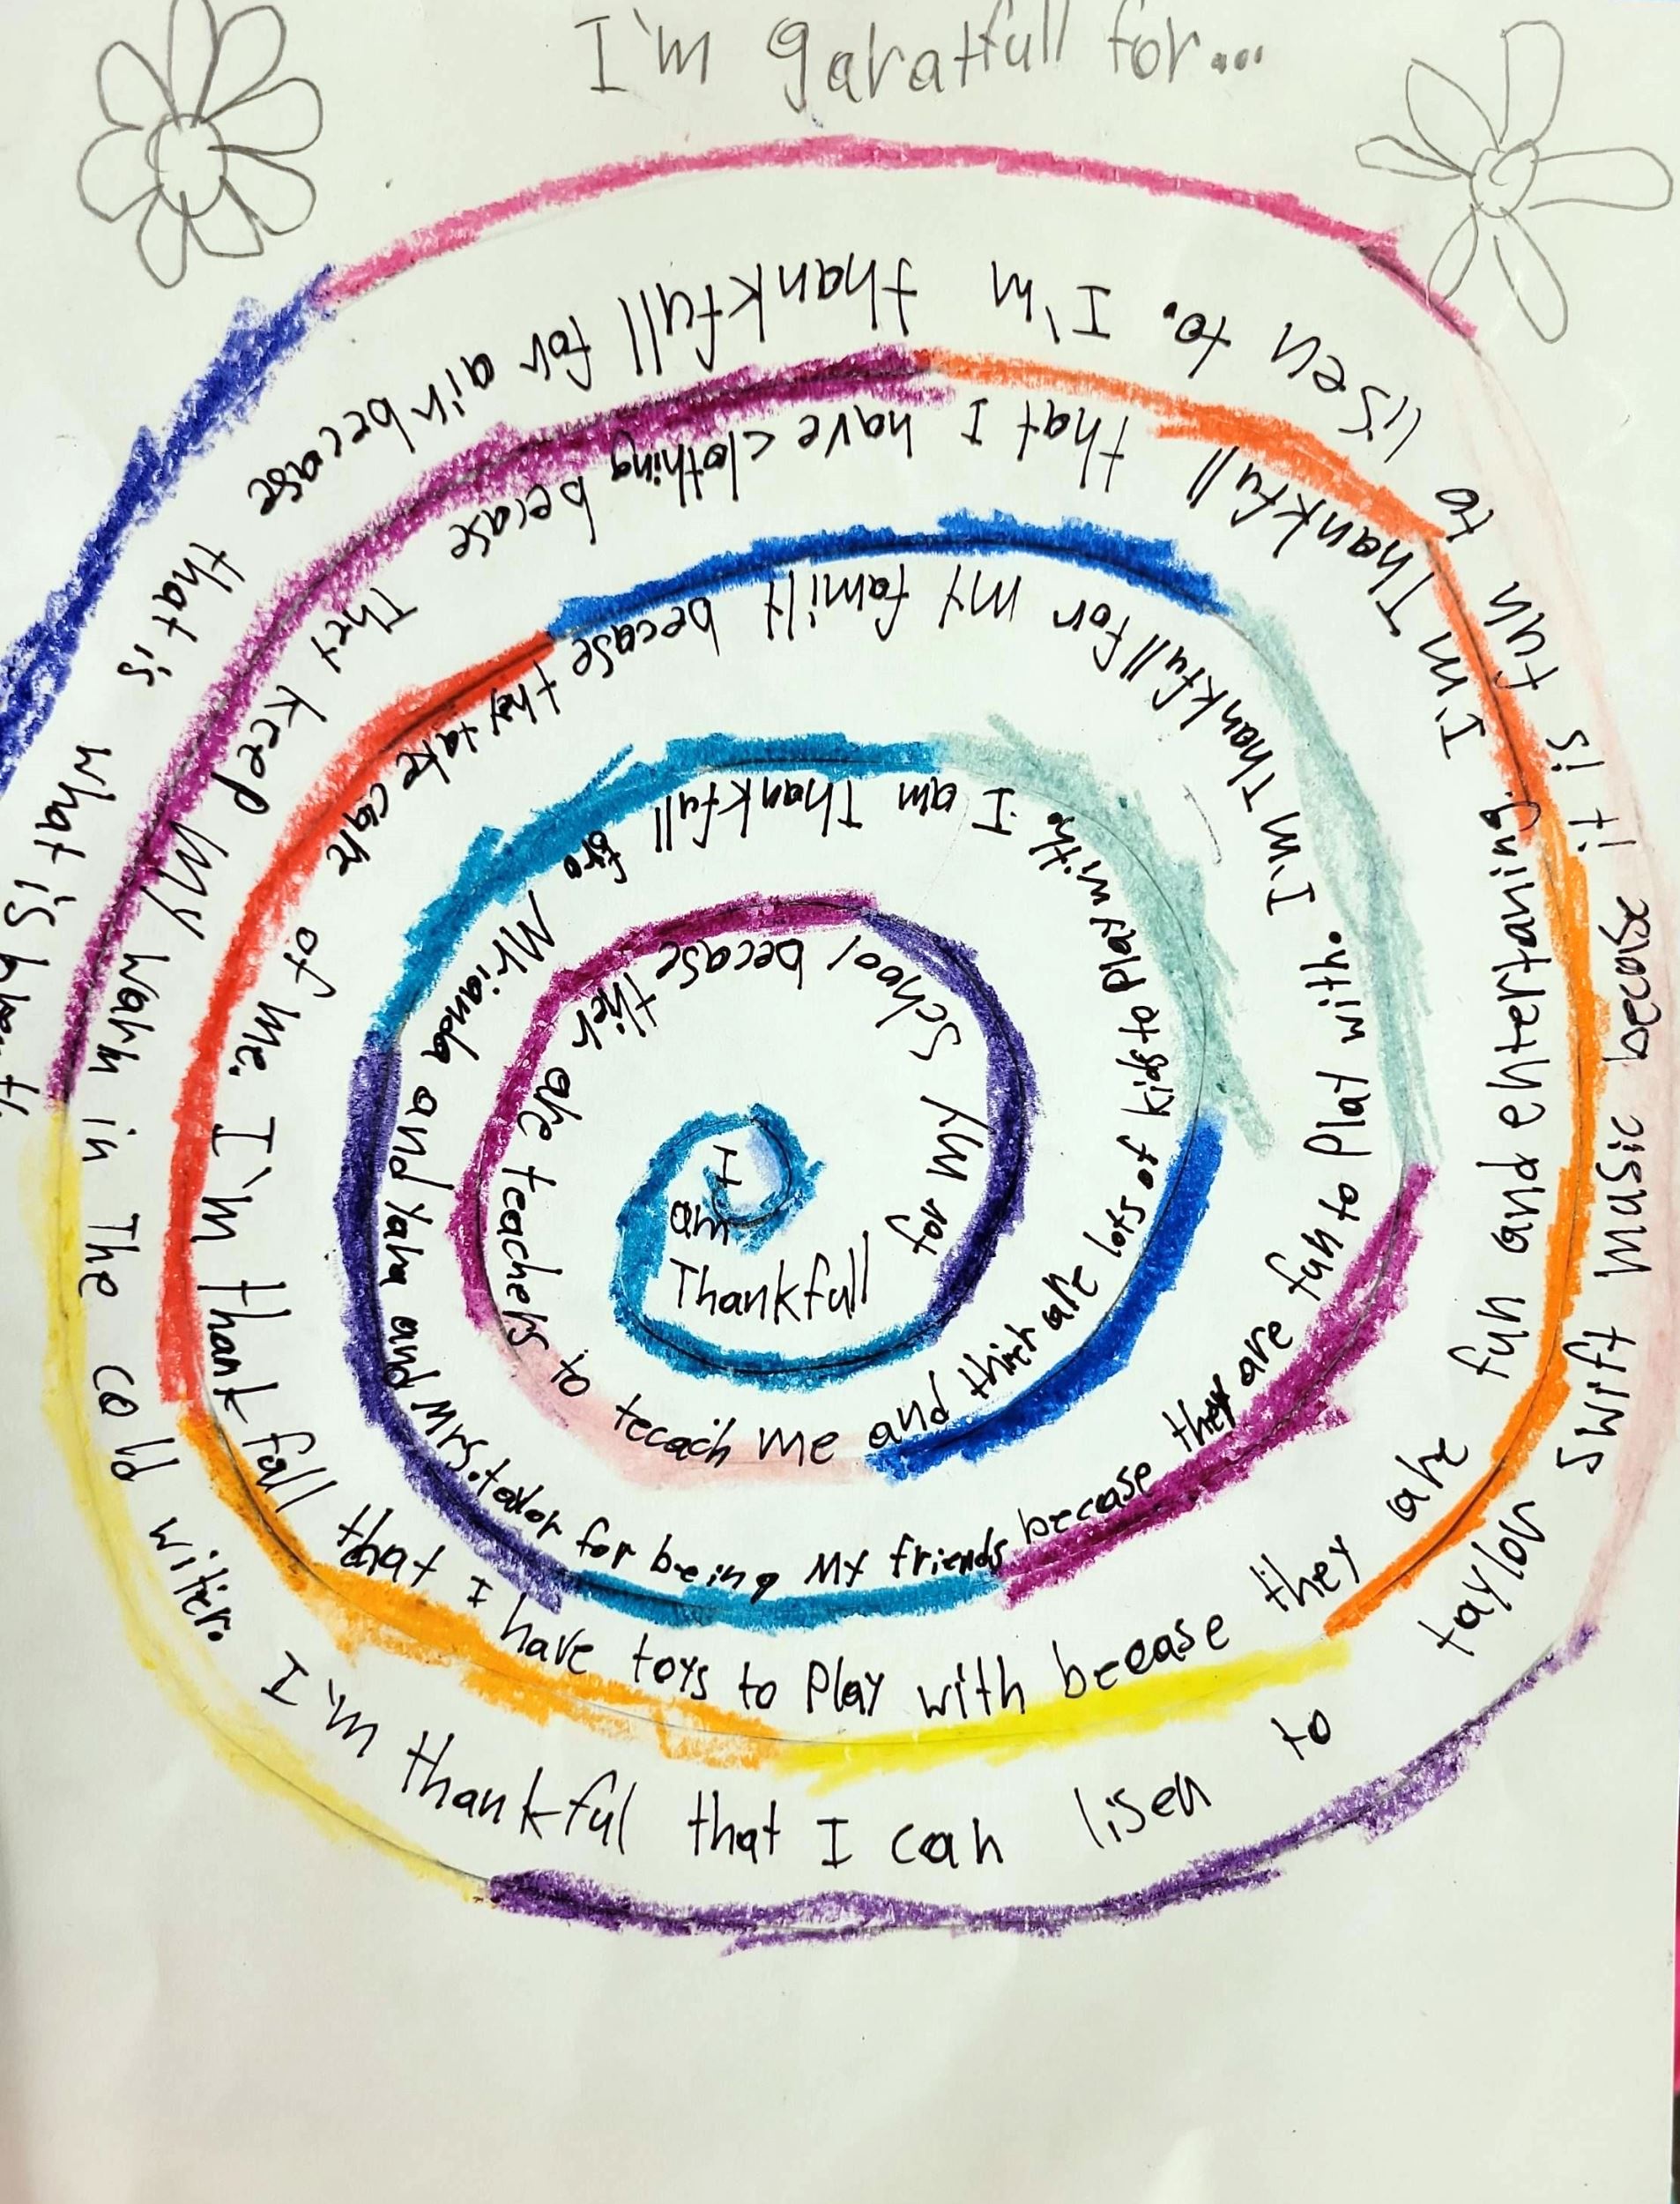 I'm garatfull for...
I am Thankfull for my School becase thier are teachers to tecach me and thier are lots of kids to play with. I am Thankfull fro Mrianda and Yaha and Mrs. talor for being my friends becase they are fun to play with. I'm Thankfull for my family becase they take care of me. I'm thank full that I have toys to play with becase they are fun and enertaning. I'm Thankfull that I have clothing becase They keep my warm in The cold witer. I'm thankful that I can lisen to taylor swift music becase it is fun to lisen to. I'm thankfull for air becase that is what is